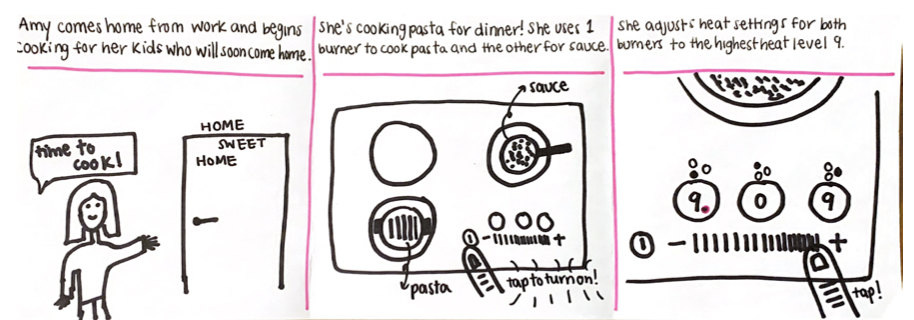 Amy comes home from work and begins
cooking for her kids who will soon come home.
time to
cook!
HOME
SWEET
HOME
She's cooking pasta for dinner! She uses 1
burner to cook pasta and the other for sauce.
sauce
- +
pasta
tap to turn on!
She adjusts heat settings for both
burners to the highest heat level 9.
9. 0 9
- +
tap!